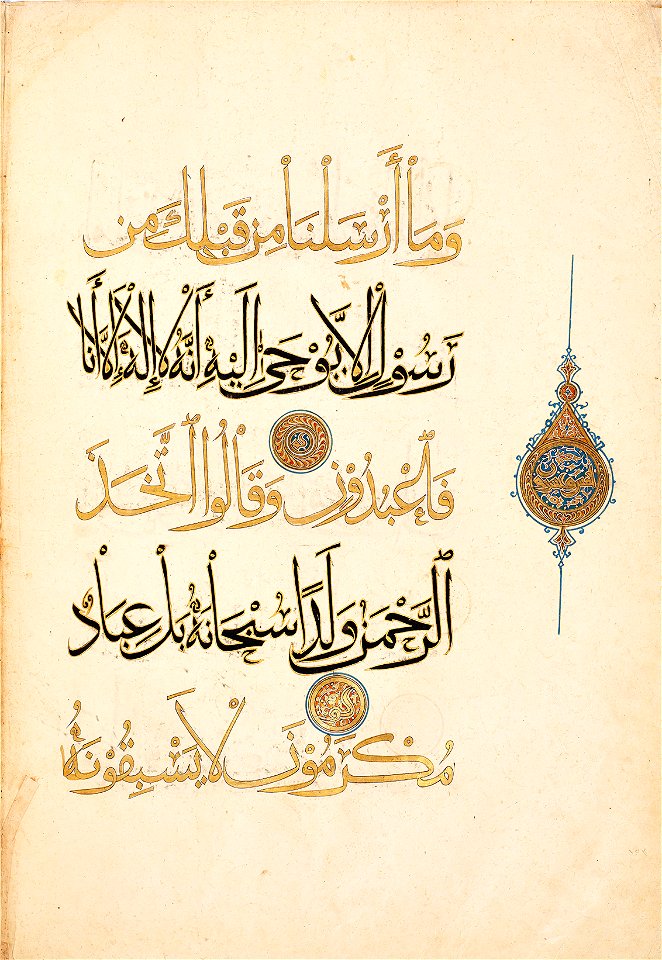 وَمَا أَرْسَلْنَا مِن قَبْلِكَ مِن
رَسُولٍ إِلَّا يُوْحَىٰ إِلَيْهِ أَنَّهُ لَا إِلَهَ إِلَّا أَنَا
فَاعْبُدُوْنِ وَقَالُوا اتَّخَذَ
الرَّحْمَنُ وَلَدًا سُبْحَانَهُ بَلْ عِبَادٌ
مُكْرَمُوْنَ لَا يَسْبِقُوْنَهُ